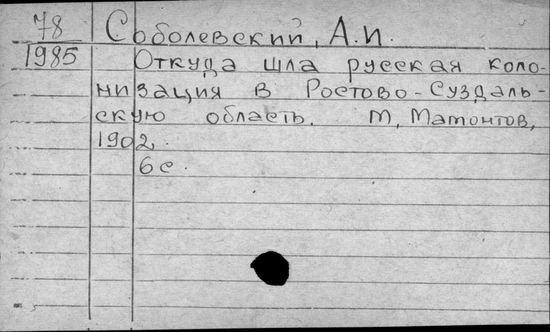 78 Соболевский, А.И.
1985 Откуда шла русская коло-
низация в Ростово-Суздаль-
скую область. М, Мамонтов,
1902.
6с.